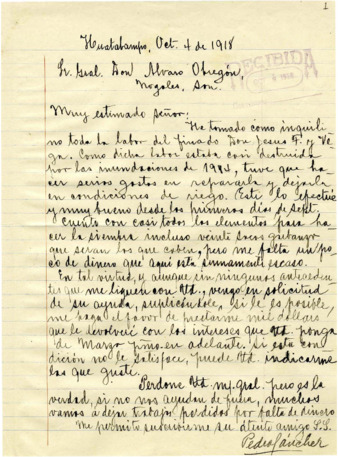 1
Huatabampo, Oct. 4 de 1918
RECIBIDA
Sr. Gral. Don Alvaro Obregón,
Nogales, Son.
Muy estimado Señor:
He tomado como inquili
no toda la labor del finado Don Jesus F. y Ve
ga. Como dicha labor estaba casi destruida
por las inundaciones de tuve que ha
cer serios gastos en repararla y dejarla
en condiciones de riego. Esto lo efectué
y muy bueno desde los primeros dias de Sept.
Cuento con casi todos los elementos para ha
cer la siembra incluso veinte sacos garbanzo
que seran los que caben, pero me falta un po
co de dinero que aqui está sumamente escaso.
En tal virtud, y aunque sin ningunos anteceden
tes que me liguen con Ud., vengo en solicitud
de su ayuda, suplicándole, si le es posible,
me haga el favor de prestarme mil dollars
que le devolveré con los intereses que Ud. ponga
de Marzo pmo. en adelante. Si esta con
dición no le satisface, puede Ud. indicarme
las que guste.
Perdone Ud. mi Gral. pero es la
verdad, si no nos ayudan de fuera, muchos
vamos a dejar trabajos perdidos por falta de dinero
Me permito suscribirme su atento amigo S.S.
Pedro Sánchez